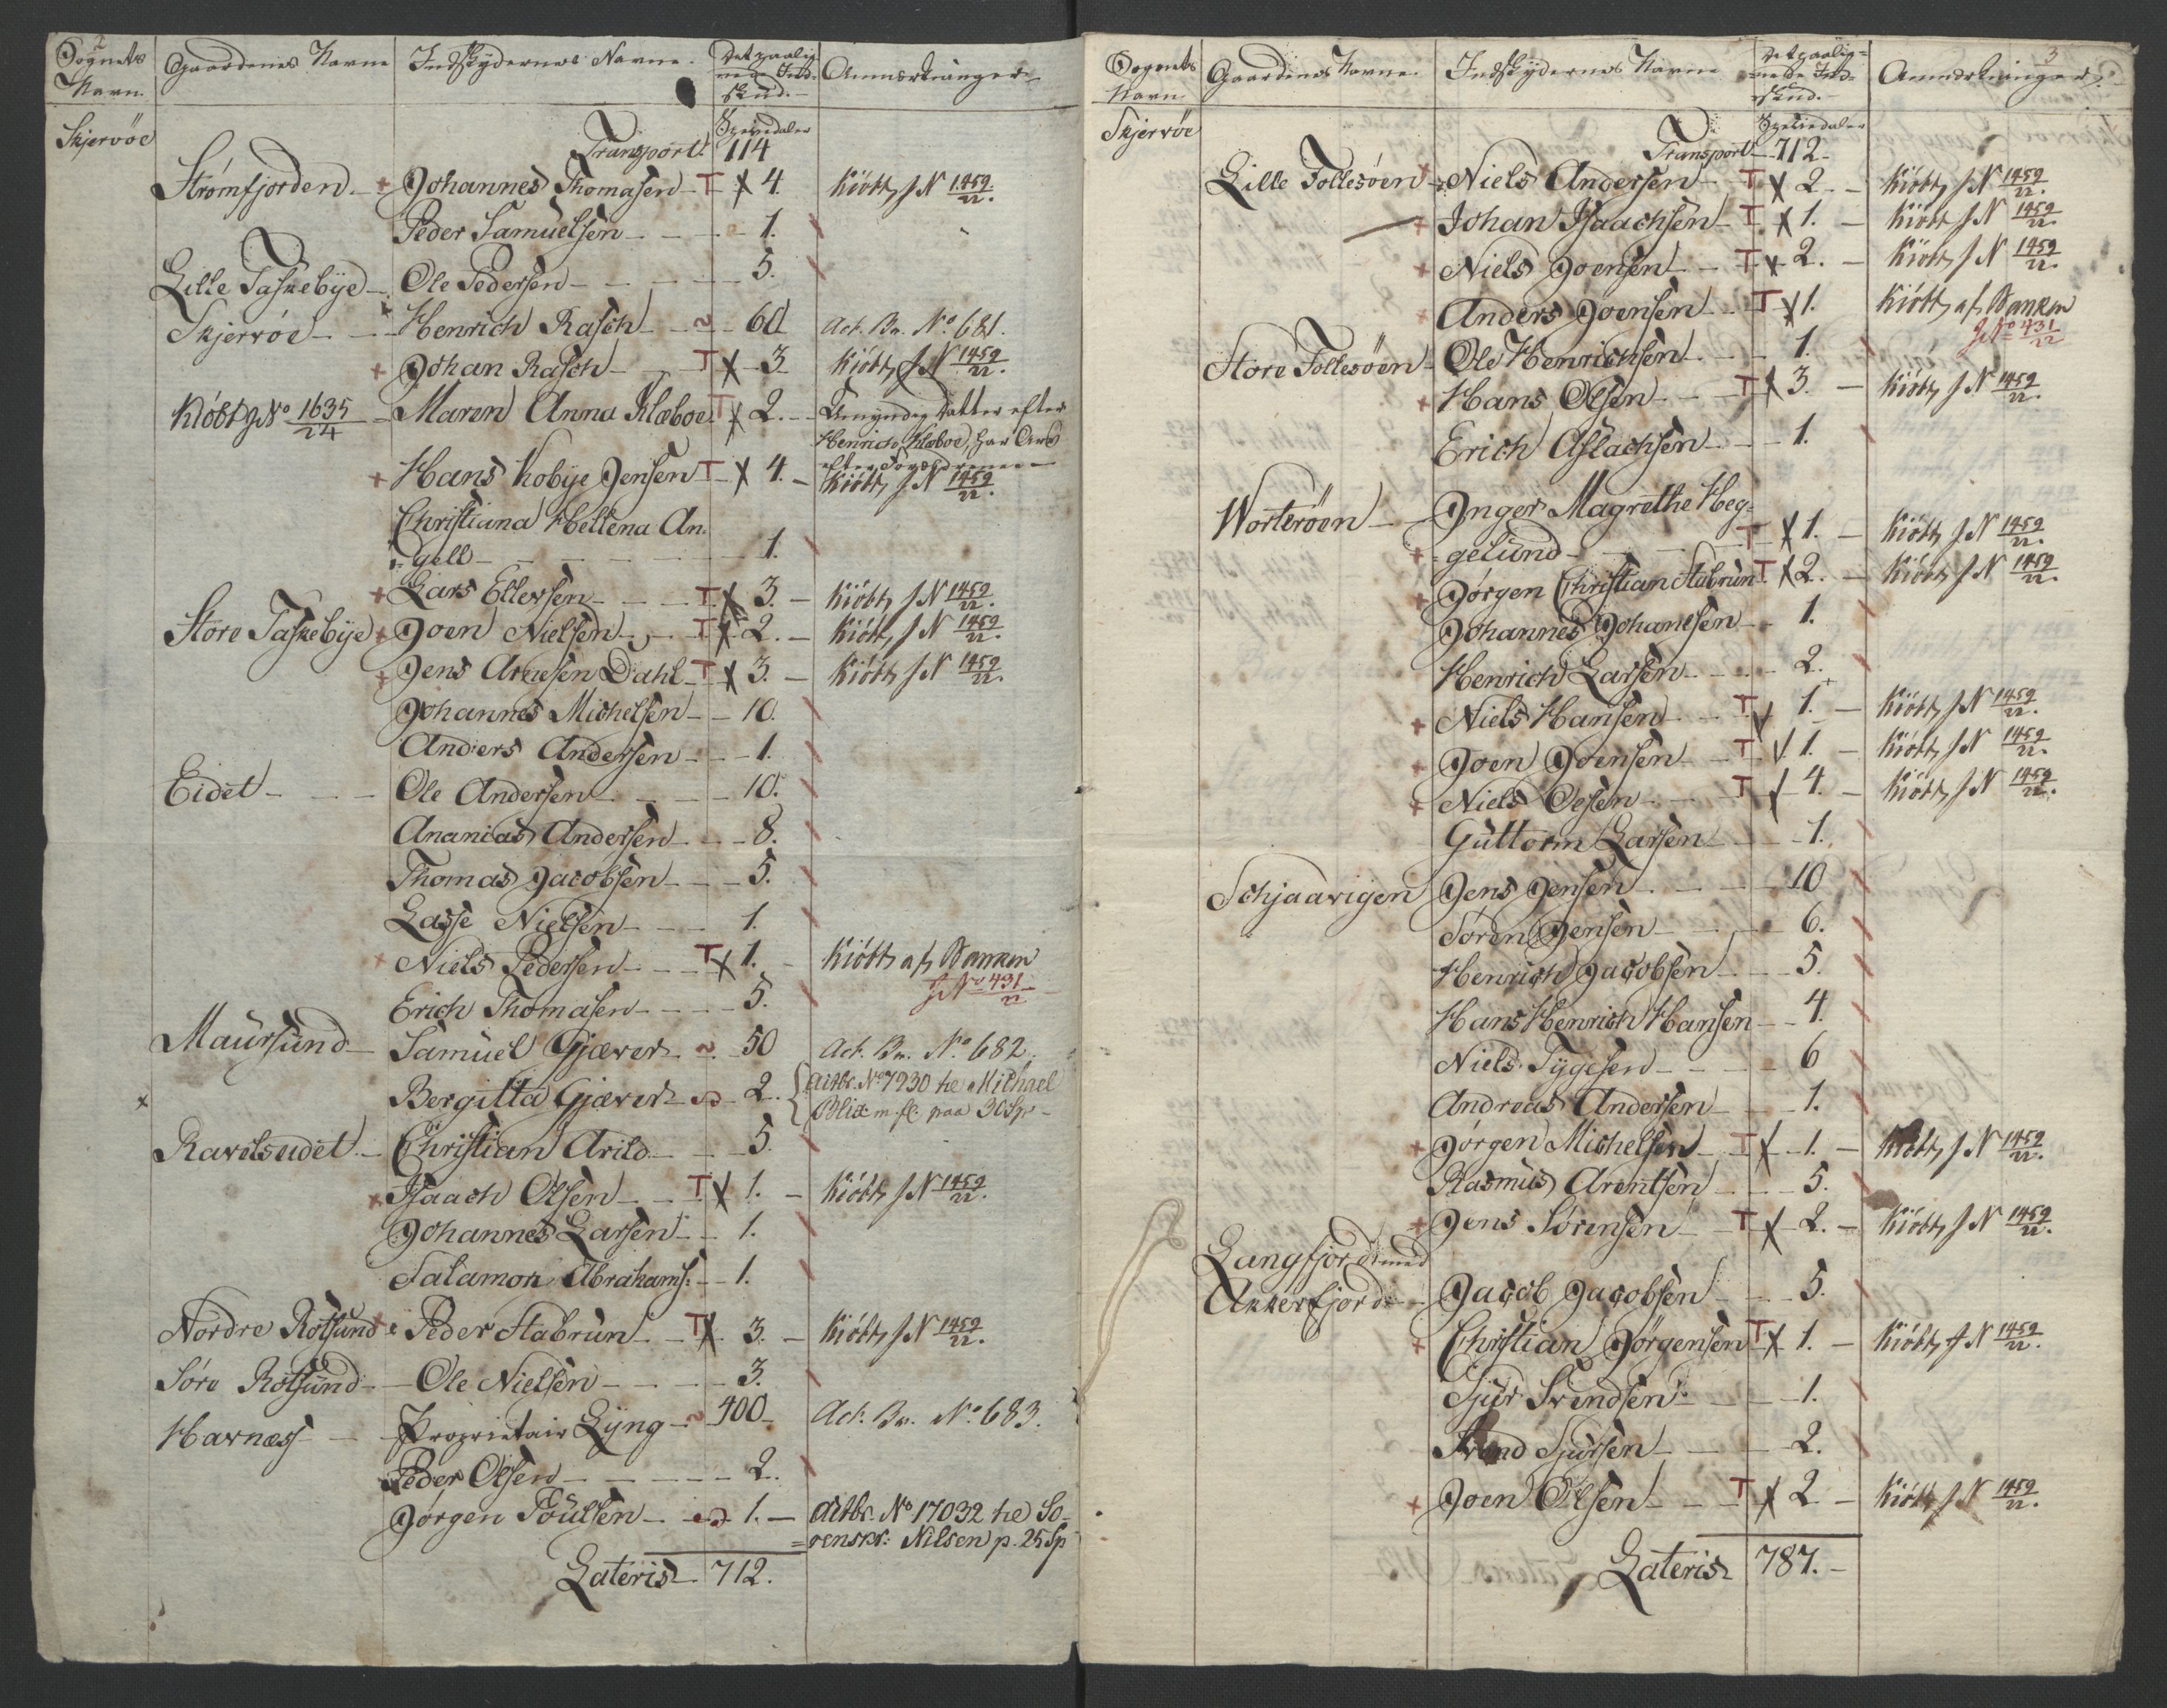 2
Sognets Navn. Gaardenes Navne Indskydernes Navne. Det paalignede Indskud. Anmærkninger
Skjervöe Speciedaler
Transport 114
Strømfjorden + Johannes Thomasen T x 4. Kiöbt J N 1459/22.
Peder Samuelsen 1.
Lille Taskebye Ole Pedersen 5.
Skjervöe Henrich Rasch 60 Act. Br. No 681.
+ Johan Rasch T x 3 Kiöbt J N 1459/22.
Kiöbt J No 1635/24 Maren Anna Klæboe T x 2. Umyndig Datter efter
Henrich Klæboe, har Arv
efter Forældrene
+ Hans Kobye Jensen T x 4. Kiöbt J N 1459/22.
Christiana Hellena An-
gell 1.
+ Lars Ellersen T x 3. Kiöbt J N 1459/22.
Store Taskebye + Joen Nielsen T x 2. Kiöbt J N 1459/22.
+ Jens Arnesen Dahl T x 3. Kiöbt J N 1459/22.
Johannes Michelsen 10.
Anders Andersen 1.
Eidet Ole Andersen 10.
Ananias Andersen 8.
Thomas Jacobsen 5.
Lasse Nielsen 1.
+ Niels Pedersen T x 1. Kiöbt af Banken
J No 431/22
Erich Thomasen 5.
Maursund Samuel Gjæver 50 Act. Br. No 682.
x Bergitta Gjæver 2. Actbr. No 7930 til Michael
Blix m. fl. paa 30 Sp
Ravelseidet Christian Arild 5.
+ Isaach Olsen T x 1. Kiöbt J N 1459/22.
Johannes Larsen 1.
Salamon Abrahams: 1.
Nordre Rotsund + Peder Stabrun T x 3. Kiöbt J N 1459/22.
Söre Rotsund Ole Nielsen 3.
Havnæs Proprietair Lyng 400 Act. Br. No 683.
Peder Olsen 2.
Jørgen Poulsen 1. Actbr. No 17032 til So-
renskr: Nilsen p. 25 Sp
Lateris 712.
3
Sognets Navn Gaardenes Navne. Indskydernes Navne Det paalignede Indskud. Anmærkninger.
Skjervöe Speciedaler
Transport 712
Lille Follesöen + Niels Andersen T x 2. Kiöbt J N 1459/22.
+ Johan Isaachsen T x 1. Kiöbt J N 1459/22.
+ Niels Joensen T x 2. Kiöbt J N 1459/22.
+ Anders Joensen T x 1. Kiöbt af Banken
J No 431/22
Store Follesöen Ole Henrichsen 1.
+ Hans Olsen T x 3. Kiöbt J N 1459/22.
Erich Aslachsen 1.
Worteröen Inger Magrethe Heg-
+ gelund T x 1. Kiöbt J N 1459/22.
+ Jørgen Christian Stabrun T x 2. Kiöbt J N 1459/22.
Johannes Johansen 1.
Henrich Larsen 2.
+ Niels Hansen T x 1. Kiöbt J N 1459/22.
+ Joen Joensen T x 1. Kiöbt J N 1459/22.
+ Niels Olsen T x 4. Kiöbt J N 1459/22.
Guttorm Larsen 1.
Schjaavigen Jens Jensen 10
Søren Jensen 6.
Henrich Jacobsen 5.
Hans Henrich Hansen 4.
Niels Tygesen 6
Andreas Andersen 1.
+ Jørgen Michelsen T x 1. Kiöbt J N 1459/22.
Rasmus Arentsen 5.
+ Jens Sörensen T x 2. Kiöbt J N 1459/22.
Langfjord med
Akkerfjord Jacob Jacobsen 5.
+ Christian Jörgensen T x 1. Kiöbt J N 1459/22.
Sjur Svendsen 1.
Svend Sjursen 2.
+ Joen Olsen T x 2 Kiöbt J N 1459/22.
Lateris 787.